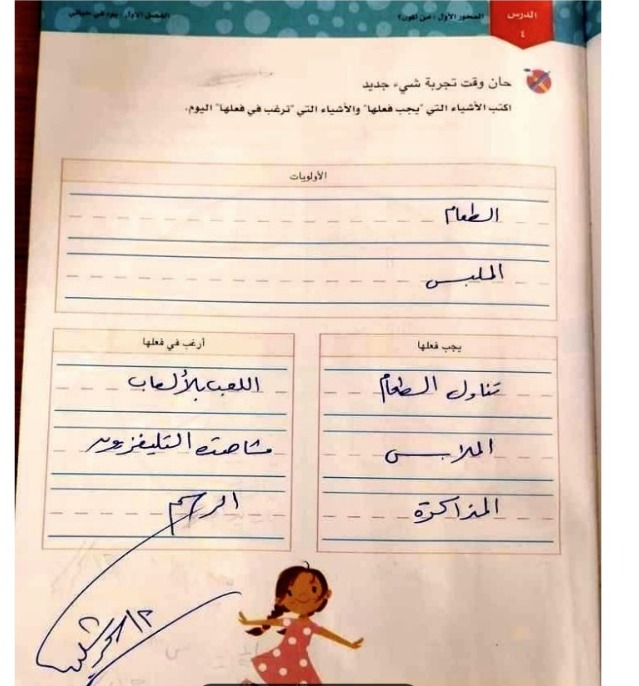 الدرس
٤
المحور الأول: من أكون؟
الفصل الأول: يوم في حياتي
حان وقت تجربة شيء جديد
اكتب الأشياء التي "يجب فعلها" والأشياء التي "ترغب في فعلها" اليوم.
الأولويات
الطعام
الملبس
يجب فعلها
تناول الطعام
الملابس
المذاكرة
أرغب في فعلها
اللعب بالألعاب
مشاهدة التليفزيون
الرسم